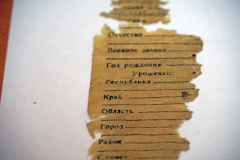 Отчество
Военное звание
Год рождения
Уроженец:
Республика
Край
Область
Город
Район
С.совет